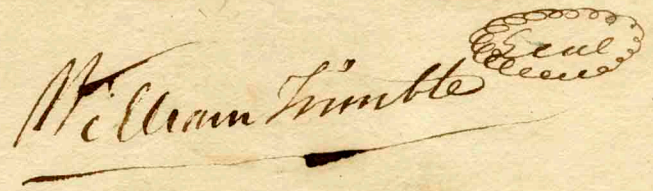 William Trimble Seal